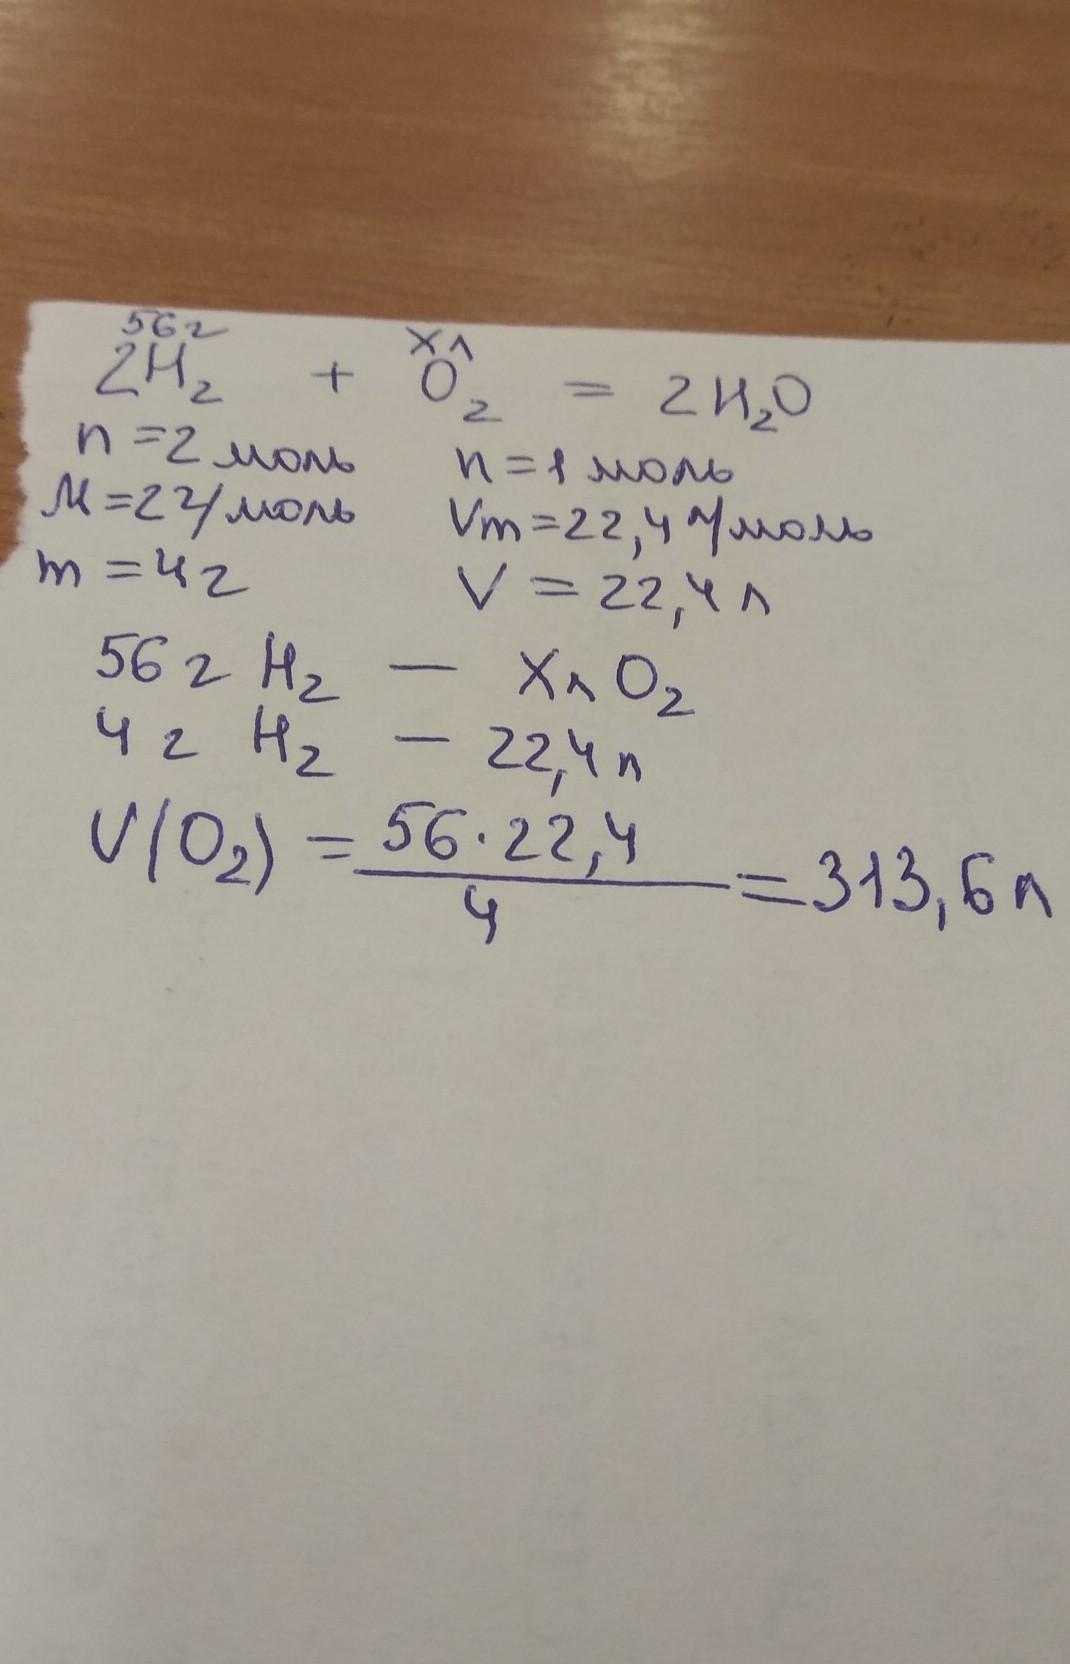 56г хл
2H₂ + O₂ = 2H₂O
n = 2 моль n = 1 моль
M = 2 г/моль Vm = 22,4 л/моль
m = 4 г V = 22,4 л
56 г H₂ — Хл O₂
4 г H₂ — 22,4 л
V(O₂) = 56 · 22,4 / 4 = 313,6 л